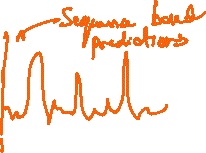 Sequence based
predictions